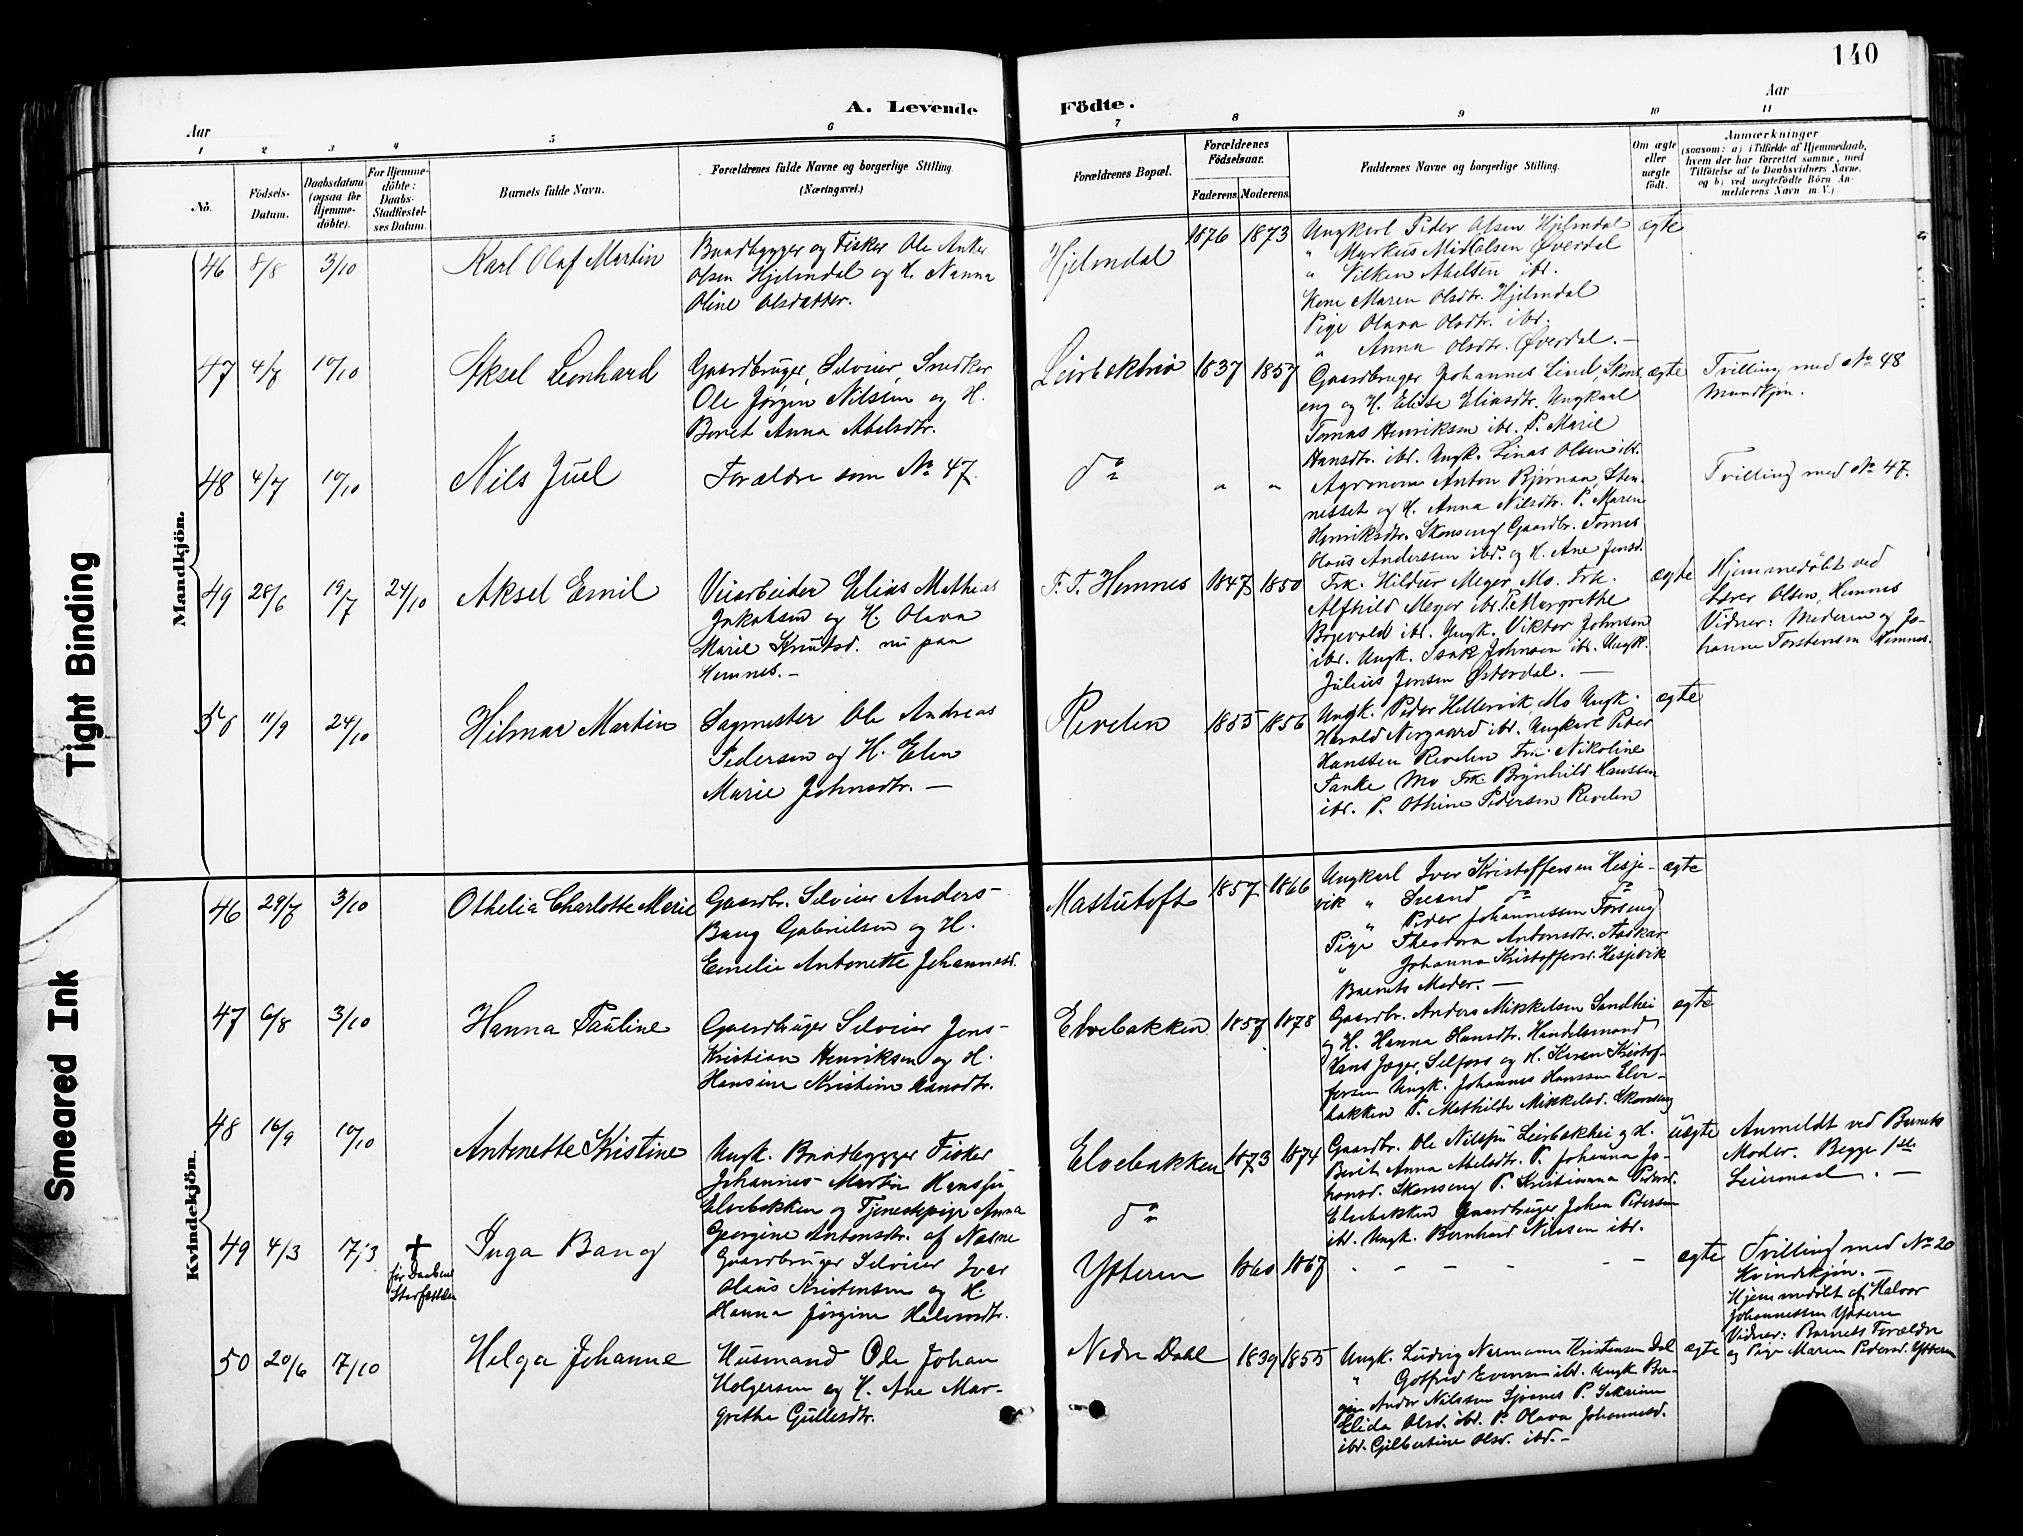 140
A. Levende Födte.
Aar
Aar
1 2 3 4 5 6 7 8 9 10 11
No.
Födsels-Datum.
Daabsdatum (ogsaa for Hjemme-döbte).
For Hjemme-döbte: Daabs-Stadfæstel-ses Datum.
Barnets fulde Navn.
Forældrenes fulde Navne og borgerlige Stilling.
(Næringsvei.)
Forældrenes Bopæl.
Forældrenes Födselsaar.
Faderens. Moderens.
Faddernes Navne og borgerlige Stilling.
Om ægte eller uægte födt.
Anmærkninger
(saasom: a) i Tilfælde af Hjemmedaab,
hvem der har forrettet samme, med
Tilföielse af to Daabsvidners Navne.
og b) ved uægtefödte Börn An-
melderens Navn m V.)
Mandkjön.
46 8/8 3/10
Karl Olaf Martin
Baadbygger og Fisker Ole Anker
Olsen Hjelmdal og H. Nanna
Oline Olsdatter.
Hjelmdal
1876 1873
Ungkarl Peder Olsen Hjelmdal
" Markus Mikkelsen Øverdal
" Vilken Abelsen ibd.
Kone Maren Olsdtr. Hjelmdal
Pige Olava Olsdtr. ibd.
" Anna Olsdtr. Øverdal. —
ægte
47 4/7 10/10
Aksel Leonhard
Gaardbruger, Selveier, Snedker
Ole Jørgen Nilsen og H.
Beret Anna Abelsdtr.
1837 1857
Gaardbruger Johannes Lind, Skons
eng og H. Elise Eliasdtr. Ungkarl
Tomas Henriksen ibd. P. Marie
Hansdtr. ibd. Ungk. Linas Olsen ibd.
ægte
Tvilling med No 48
Mandkjøn.
48 4/7 10/10
Nils Juel
Forældre som No 47.
do
" "
Agronom Anton Bjørnaa, Sten-
nesset og H. Anna Nilsdtr. P. Maren
Henriksdtr. Skonseng Gaardbr. Tomas
Olaus Anderssen ibd. og H. Ane Jensd.
Tvilling med No 47.
49 28/6 19/7 24/10
Aksel Emil
Veiarbeider Elias Mathias
Jakobsen og H. Olava
Marie Knutsd. nu paa
Hemnes. —
F. T. Hemnes
1847 1850
Frk. Hildur Meyer, Mo, Frk.
Alfhild Meyer ibd. P. Margrethe
ibd. Ungk. Viktor Johnsen
ibd. Ungk. Isak Johnsen ibd. Ungk.
Julius Jensen Østerdal. —
ægte
Hjemmedøbt ved
Lærer Olsen, Hemnes
Vidner: Moderen og Jo-
hanne Torstensen Hemnes.
50 11/9 24/10
Hilmar Martin
Sagmester Ole Andreas
Pedersen og H. Elen
Marie Johnsdtr. —
Revelen
1855 1856
Ungk. Peder Hellervik, Mo Ungk.
Harald Norgaard ibd. Ungkarl Peder
Hanssen Revelen Fru Nikoline
Tanke, Mo Frk. Brynhild Hanssen
ibd. P. Othine Pedersen Revelen
ægte
Kvindekjön.
46 29/7 3/10
Othelia Charlotte Marie
Gaardbr. Selveier Anders
Bang Gabrielsen og H.
Emelie Antonette Johannesd.
Mastutoft
1857 1866
Ungkarl Iver Kristoffersen Hesje-
vik " Svend do
" Peder Johannessen Forseng
Pige Theodora Antonsdtr. Aaskar
" Johanna Kristoffersd. Hesjevik
Barnets Moder. —
ægte
47 6/8 3/10
Hanna Pauline
Gaardbruger Selveier Jens-
Kristian Henriksen og H.
Hansine Kristine Hansdtr.
Elvebakken
1857 1878
Gaardbr. Anders Mikkelsen Sandhei
og H. Hanna Hansdtr. Handelsmand
Hans Jæger, Selfors og H. Karen Kristof-
fersen Ungk. Johannes Hanssen Elve-
bakken P. Mathilde Mikkelsd. Skonseng
ægte
48 16/9 10/10
Antonette Kristine
Ungk. Baadbygger Fisker
Johannes Martin Hanssen
Elvebakken og Tjenestepige Anna
Georgine Antonsdtr. af Næsne
Elvebakken
do
1873 1874
Gaardbr. Ole Nilssen Leirbækhei og H.
Berit Anna Abelsdtr. P. Johanna Jo-
hansd. Skonseng P. Kristianna Pedersd.
Elvebakken Gaardbruger Johan Pedersen
ibd. Ungk. Bernhard Nilssen ibd.
uægte
Anmeldt ved Barnets
Moder. Begge 1ste
Leiermaal. —
49 4/3 17/3
✝
før Daabens
Stadfæstelse
Inga Bang
Gaardbruger Selveier Ivar
Olaus Kristensen og H.
Hanna Jørgine Halvorsdtr.
Ytteren
1860 1867
- - - - - -
ægte
Tvilling med No 20
Kvindekjøn. —
Hjemmedøbt af Halvor
Johannessen Ytteren
Vidner: Barnets Forældre
og Pige Maren Pedersd. Ytteren
50 20/6 17/10
Helga Johanne
Husmand Ole Johan
Holgersen og H. Ane Mar-
grethe Gullesdtr.
Nedre Dahl
1839 1855
Ungk. Ludvig Normann Kristensen Dal
" Gotfred Evensen ibd. Ungk Ber-
Ander Nilssen Sjønes P.
Elida Olsd. ibd. P. Olava Johannesd.
ibd. Gilbertine Olsd. ibd. —
ægte
Tight Binding
Smeared Ink